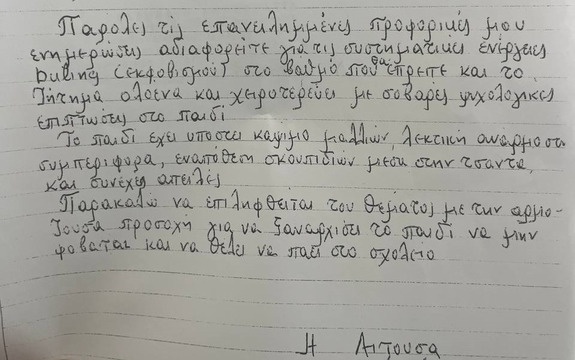 Παρόλες τις επανειλημμένες προφορικές μου
ενημερώσεις αδιαφορείτε για τις συστηματικές ενέργειες
buling (εκφοβισμού) στο βαθμό που θα έπρεπε και το
ζήτημα ολοένα και χειροτερεύει με σοβαρές ψυχολογικές
επιπτώσεις στο παιδί
Το παιδί έχει υποστεί κάψιμο μαλλιών, λεκτική ανάρμοστη
συμπεριφορά, εναπόθεση σκουπιδιών μέσα στην τσάντα,
και συνεχές απειλές
Παρακαλώ να επιληφθείται του θέματος με την αρμό-
ζουσα προσοχή για να ξαναρχίσει το παιδί να μην
φοβάται και να θέλει να πάει στο σχολείο
Η Αιτούσα